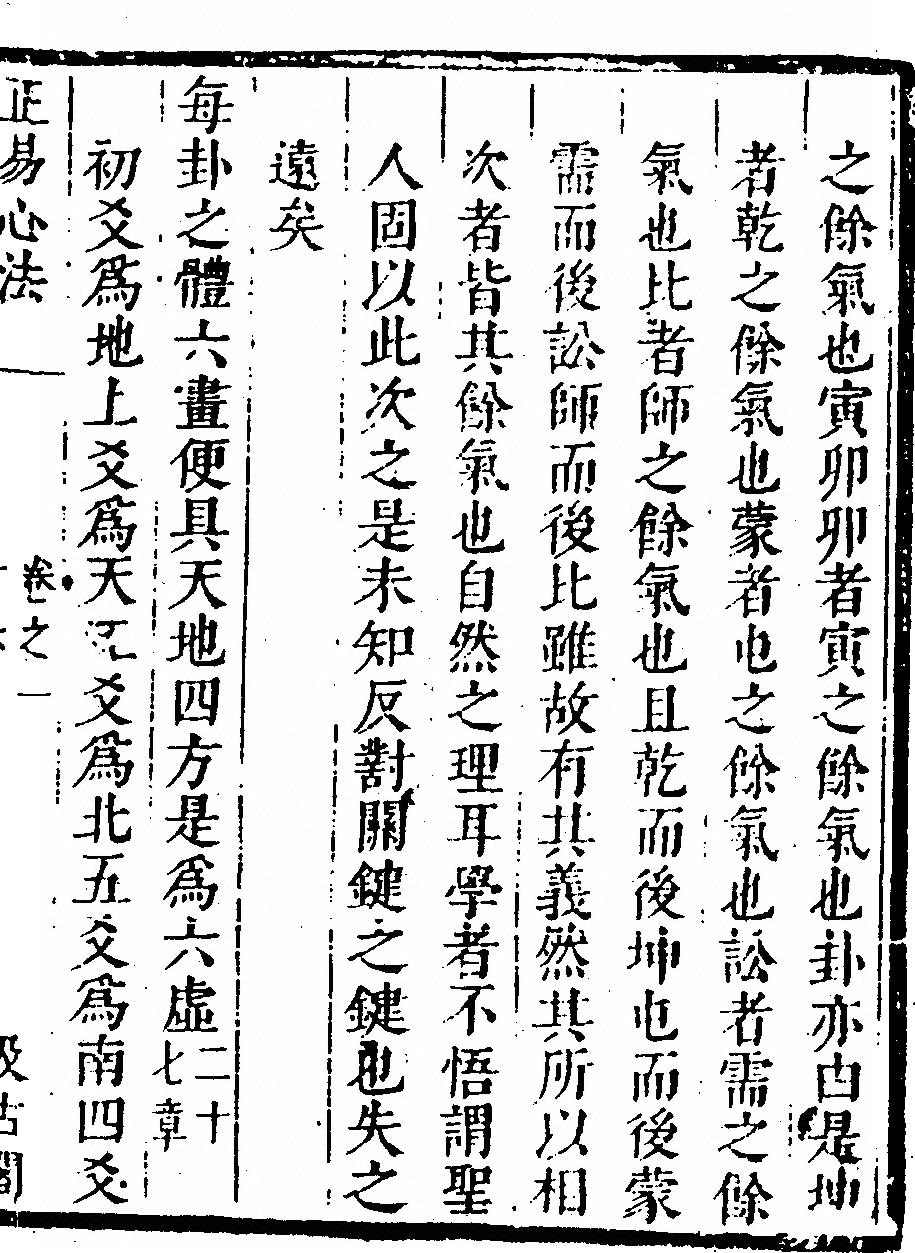 之餘氣也寅卯卯者寅之餘氣也卦亦由是坤
者乾之餘氣也蒙者屯之餘氣也訟者需之餘
氣也比者師之餘氣也且乾而後坤屯而後蒙
需而後訟師而後比雖故有其義然其所以相
次者皆其餘氣也自然之理耳學者不悟謂聖
人固以此次之是未知反對關鍵之鍵也失之
遠矣
每卦之體六畫便具天地四方是爲六虛二十七章
初爻爲地上爻爲天爻爲北五爻爲南四爻
正易心法 卷之一 汲古閣